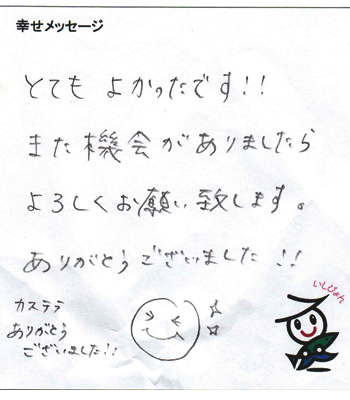 幸せメッセージ
とてもよかったです!!
また機会がありましたら
よろしくお願い致します。
ありがとうございました!!
カステラ
ありがとう
ございました!!
いしぴょん